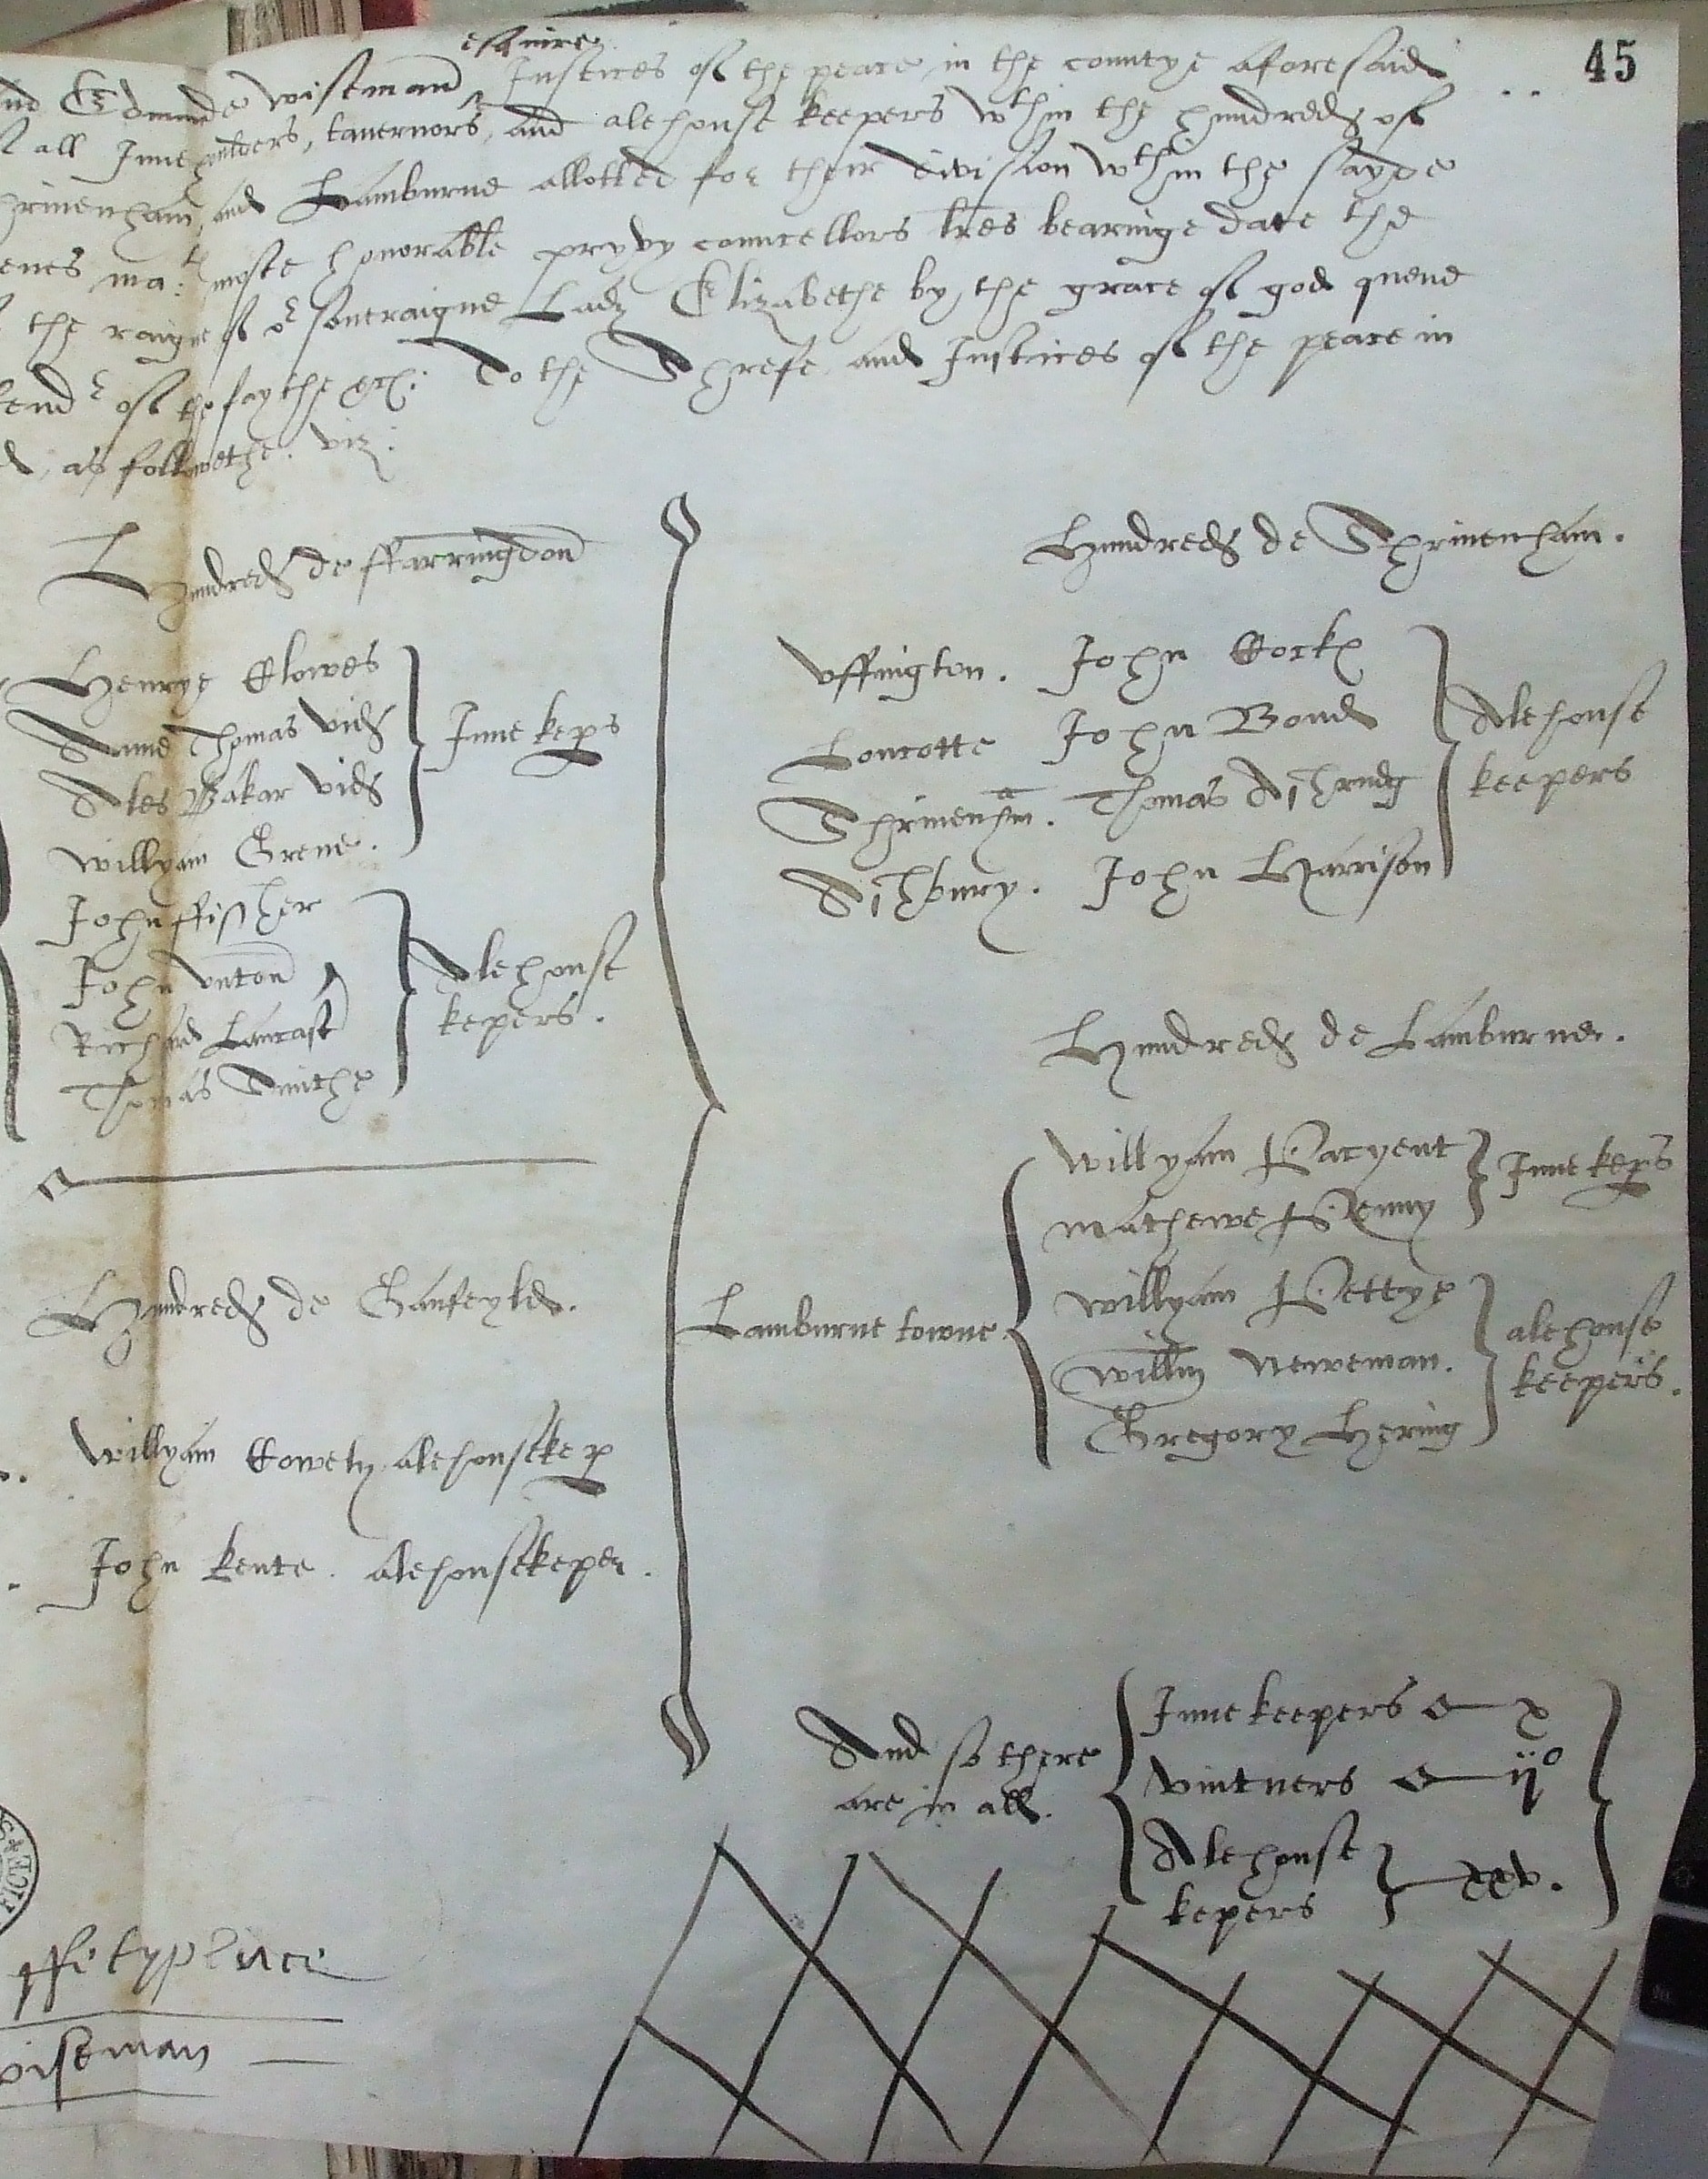 45
esquire
and Edmunde Wiseman Justices of the peace in the countye aforesaid
all Inneholders, tavernors, and alehouse keepers wthin the hundreds of
Shrivenham, and Lamburne allotted for their division wthin the sayde
ma: moste honorable pryvy councellors lres bearinge date the
the raigne of or soveraigne Lady Elizabethe by the grace of god quene
of the faythe &c: To the Shrefe and Justices of the peace in
as followethe. viz:
Hundred de ffarringdon
Henrye Clowes
Anne Thomas vid
Ales Bakar vid
Willyam Grene.
Inne keps
John ffissher
John Unton
Richard Lancast
Thomas Smithe
Alehouse
kepers.
Hundred de Ganfeyld.
Willyam alehousekep
John Kente. alehousekeper.
ffetyplace
Wiseman
Hundred de Shrivenham.
Uffington. John Cocks
Loncotte John Bond
Shrivenham. Thomas
Asshbury. John Harrison
Alehouse
keepers
Hundred de Lamburne.
Lamburne towne
Willyam Pacyent
Mathewe Penny
Inne keps
Willyam Pettye
Willm Neweman.
Gregory Hering
alehouse
keepers.
And so there
are in all.
Innekeepers x
vintners ijo
Alehouse
kepers xxv.